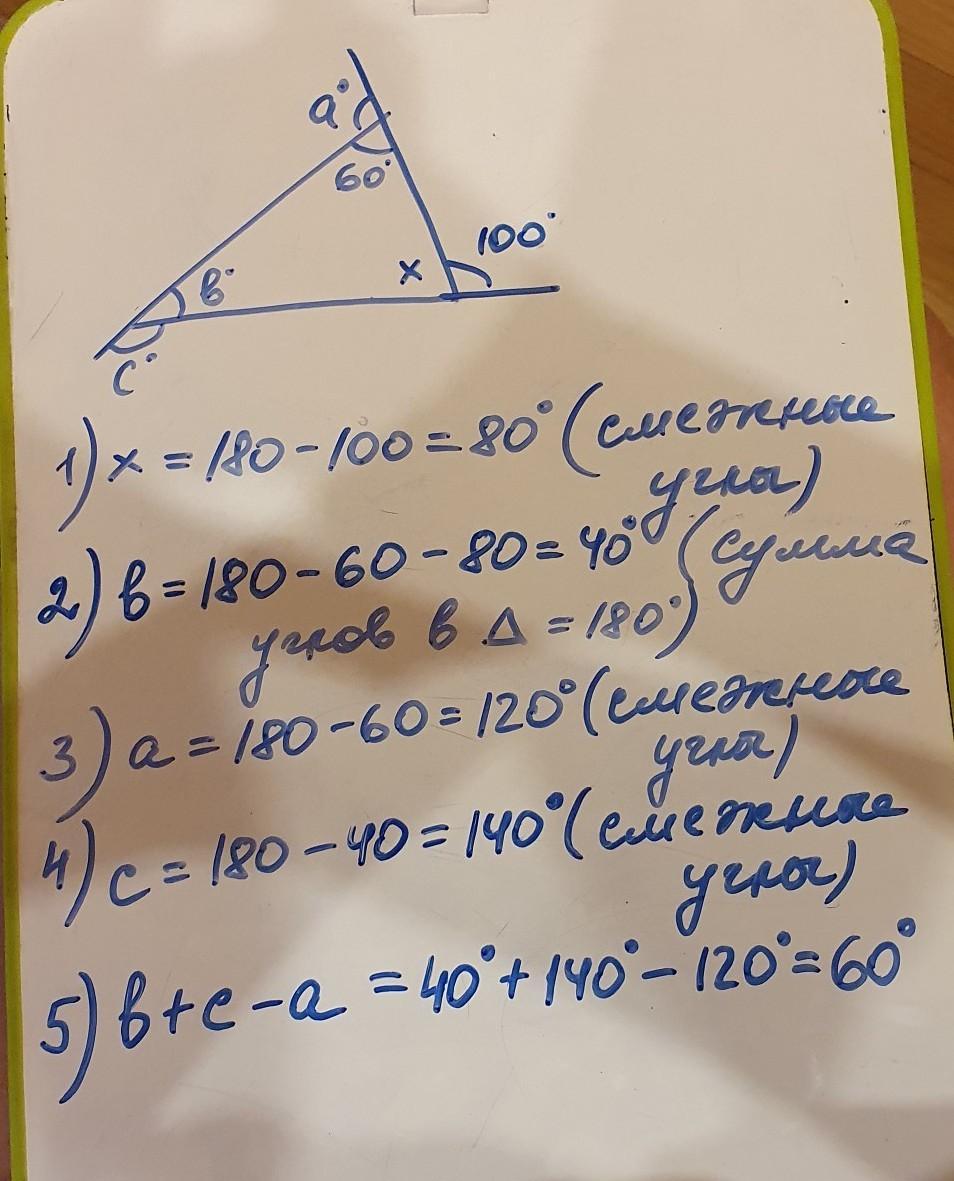 a°
60°
100°
x
в°
c°
1) x = 180 - 100 = 80° (смежные
углы)
2) в = 180 - 60 - 80 = 40° (сумма
углов в Δ = 180°)
3) a = 180 - 60 = 120° (смежные
углы)
4) c = 180 - 40 = 140° (смежные
углы)
5) в + c - a = 40° + 140° - 120° = 60°